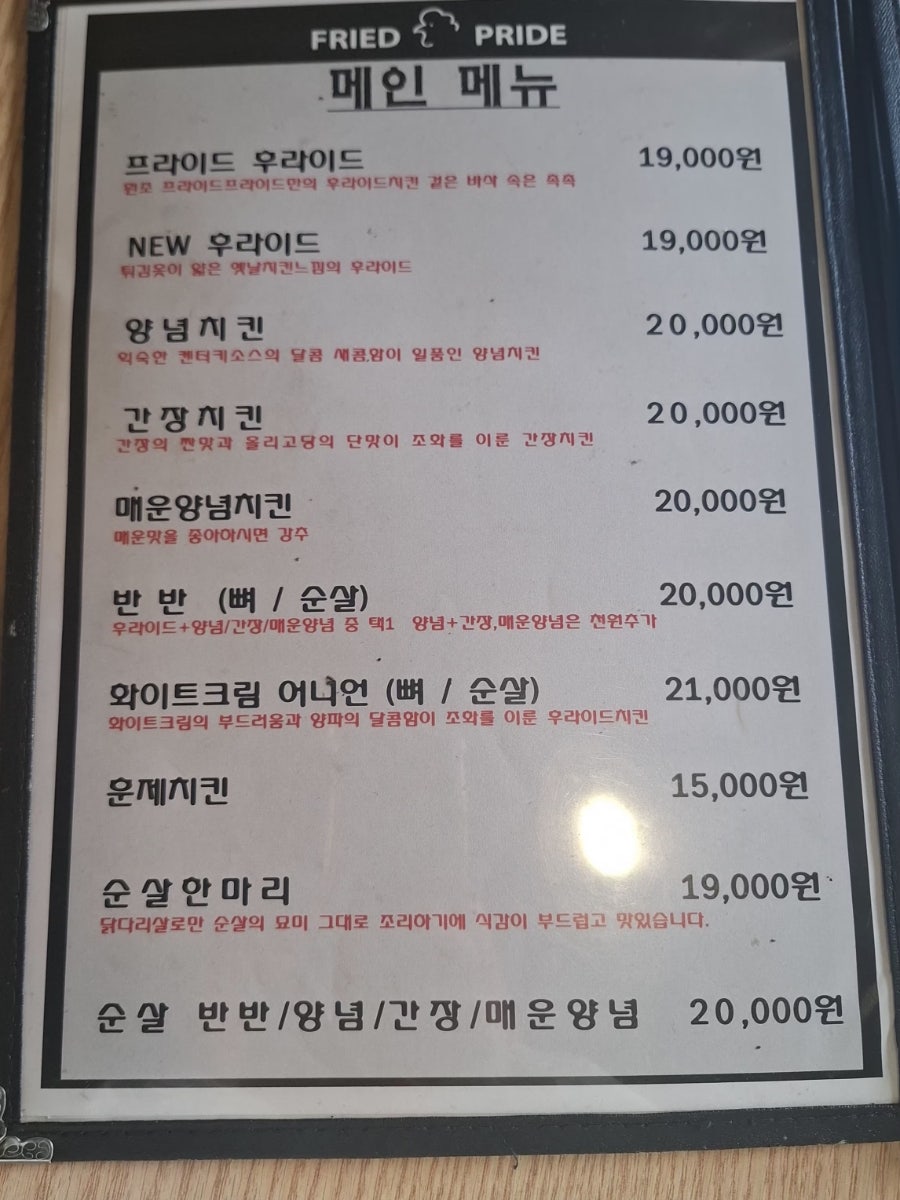 FRIED PRIDE
메인 메뉴
프라이드 후라이드 19,000원
원조 프라이드프라이드만의 후라이드치킨 겉은 바삭 속은 촉촉
NEW 후라이드 19,000원
튀김옷이 얇은 옛날치킨느낌의 후라이드
양념치킨 20,000원
익숙한 켄터키소스의 달콤 새콤함이 일품인 양념치킨
간장치킨 20,000원
간장의 짠맛과 올리고당의 단맛이 조화를 이룬 간장치킨
매운양념치킨 20,000원
매운맛을 좋아하시면 강추
반반 (뼈 / 순살) 20,000원
후라이드+양념/간장/매운양념 중 택1 양념+간장,매운양념은 천원추가
화이트크림 어니언 (뼈 / 순살) 21,000원
화이트크림의 부드러움과 양파의 달콤함이 조화를 이룬 후라이드치킨
훈제치킨 15,000원
순살한마리 19,000원
닭다리살로만 순살의 묘미 그대로 조리하기에 식감이 부드럽고 맛있습니다.
순살 반반/양념/간장/매운양념 20,000원